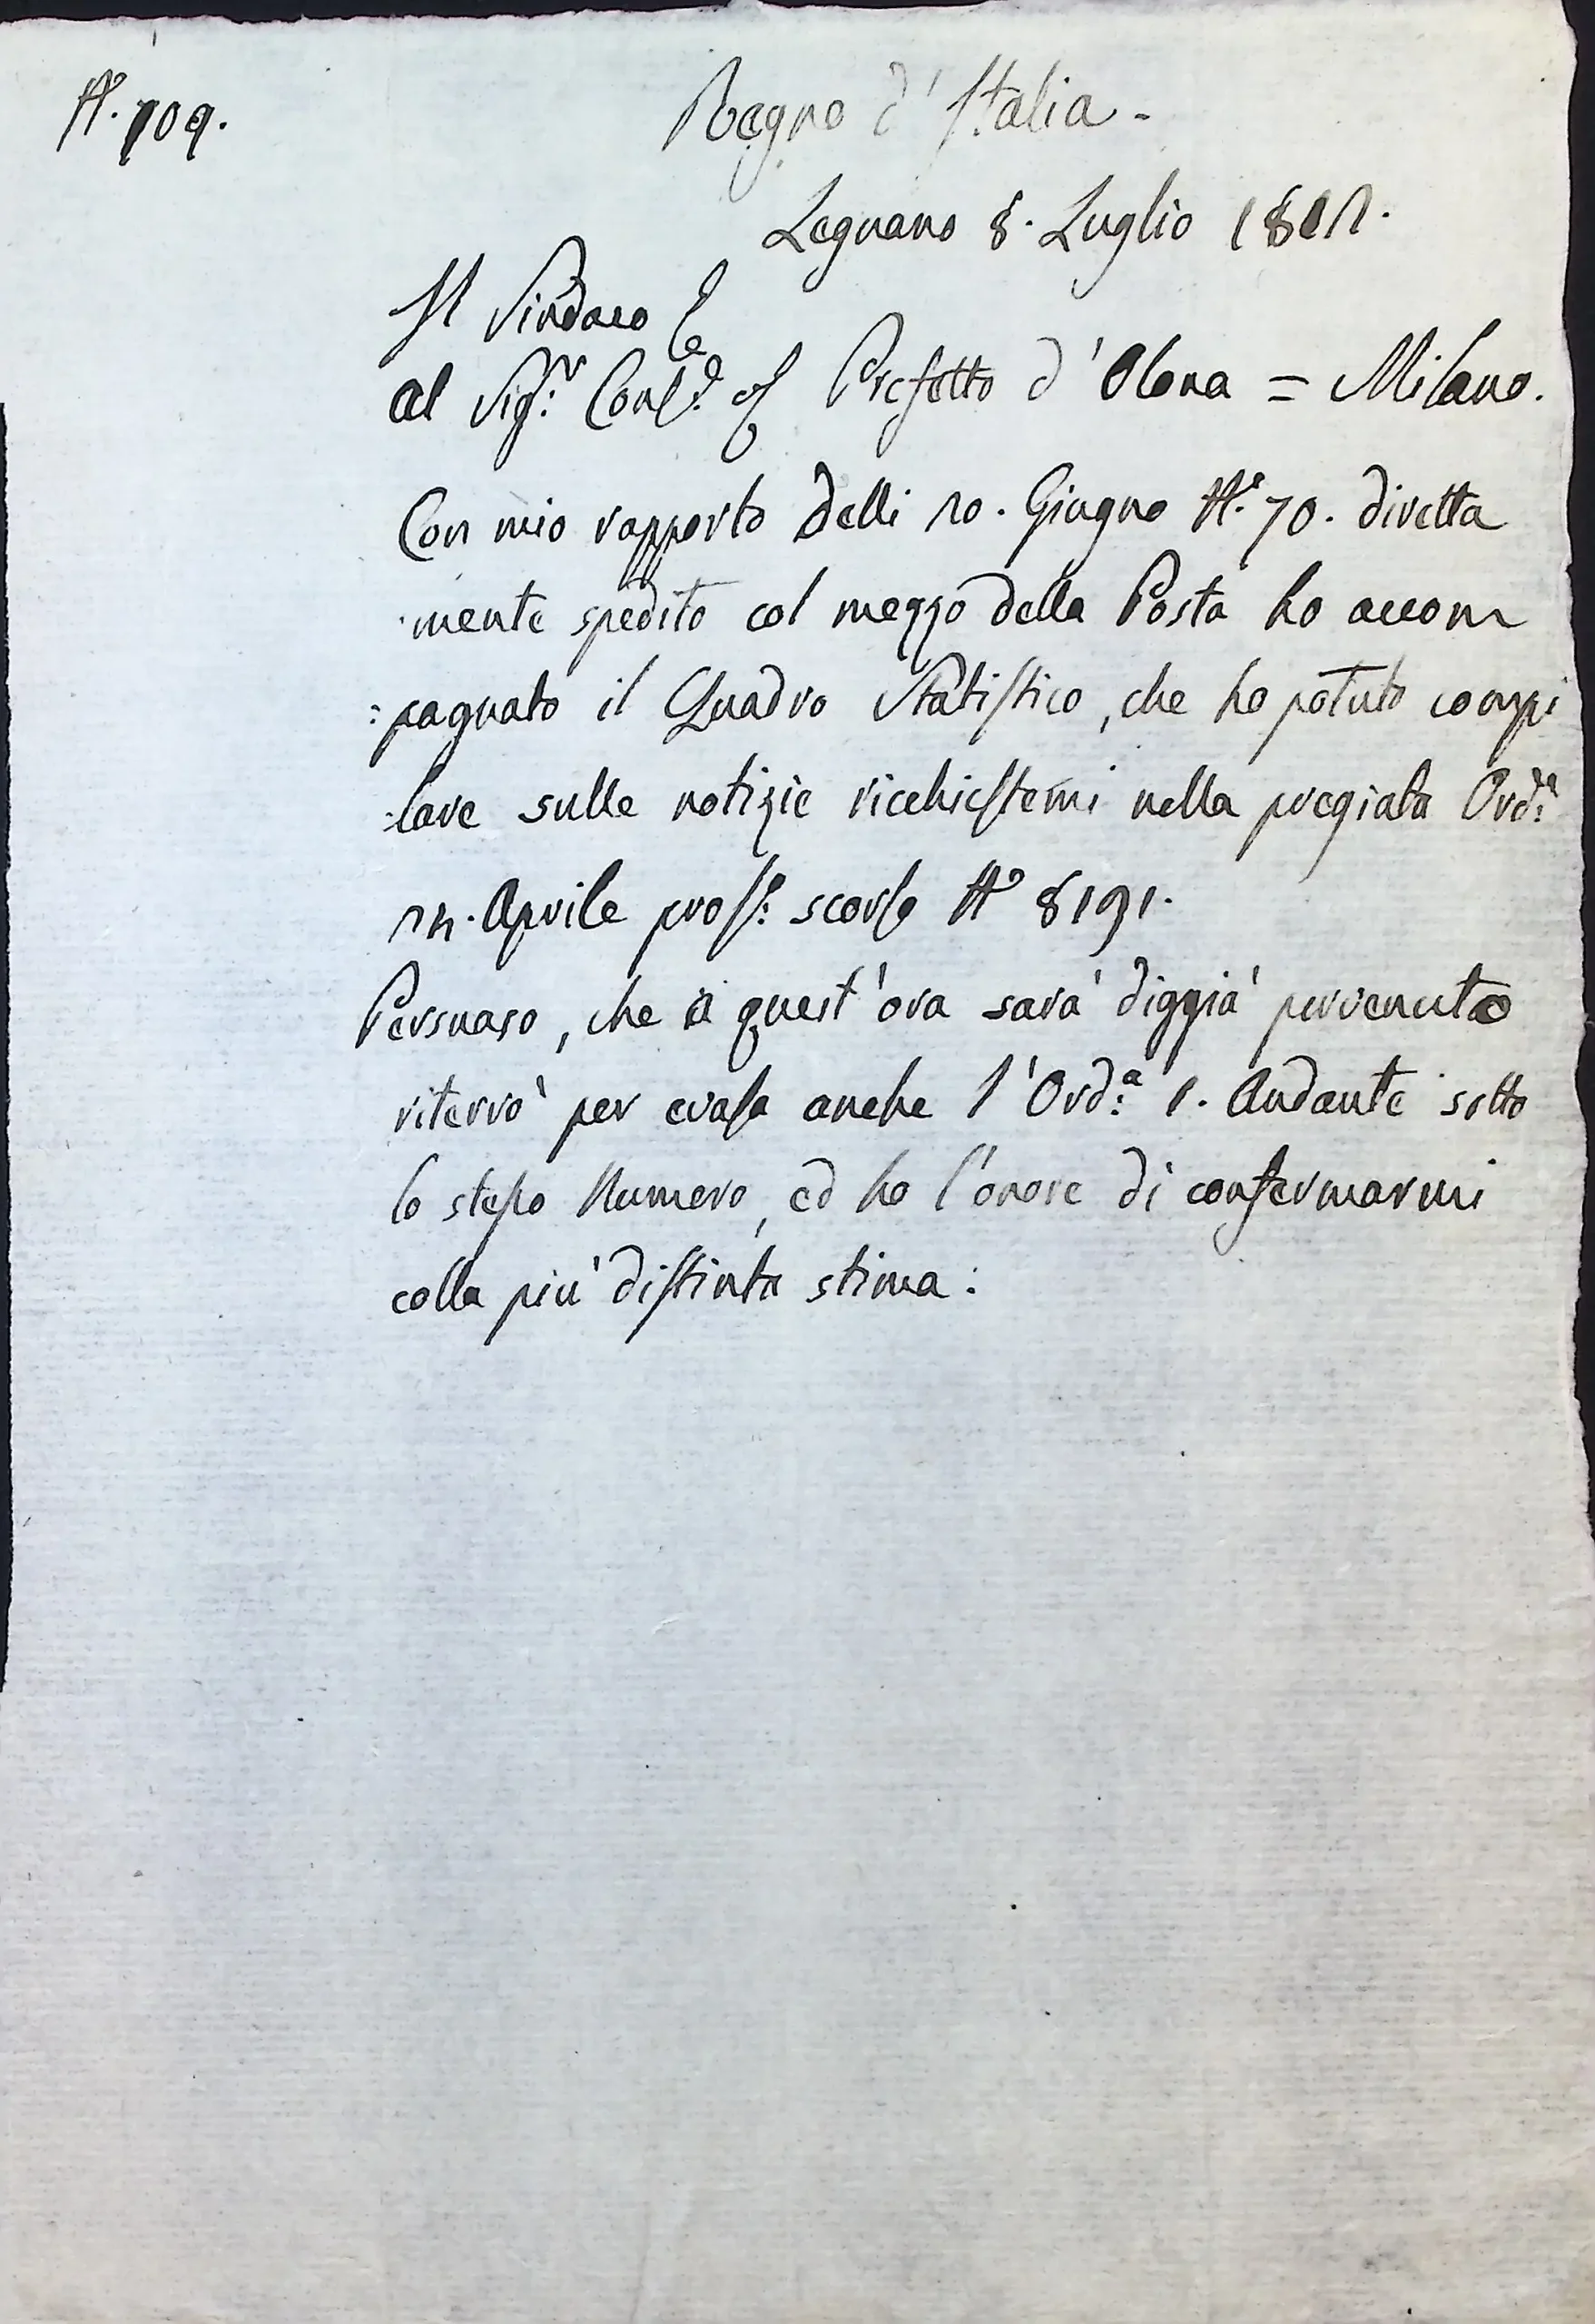 N.° 109.
Regno d'Italia -
Legnano 8. Luglio 1812.
Il Sindaco
al Sig:r Prefetto d'Olona = Milano.
Con mio rapporto delli 20. Giugno N.° 70. diretta
:mente spedito col mezzo della Posta ho accom
:pagnato il Quadro Statistico, che ho potuto compi
:lare sulle notizie richiestemi nella pregiata Ord:a
24. Aprile pross:o scorso N° 8191.
Persuaso, che a quest'ora sarà diggià pervenuto
riterrò per evasa anche l'Ord:a 1. Andante sotto
lo stesso Numero, ed ho l'onore di confermarmi
colla più distinta stima: